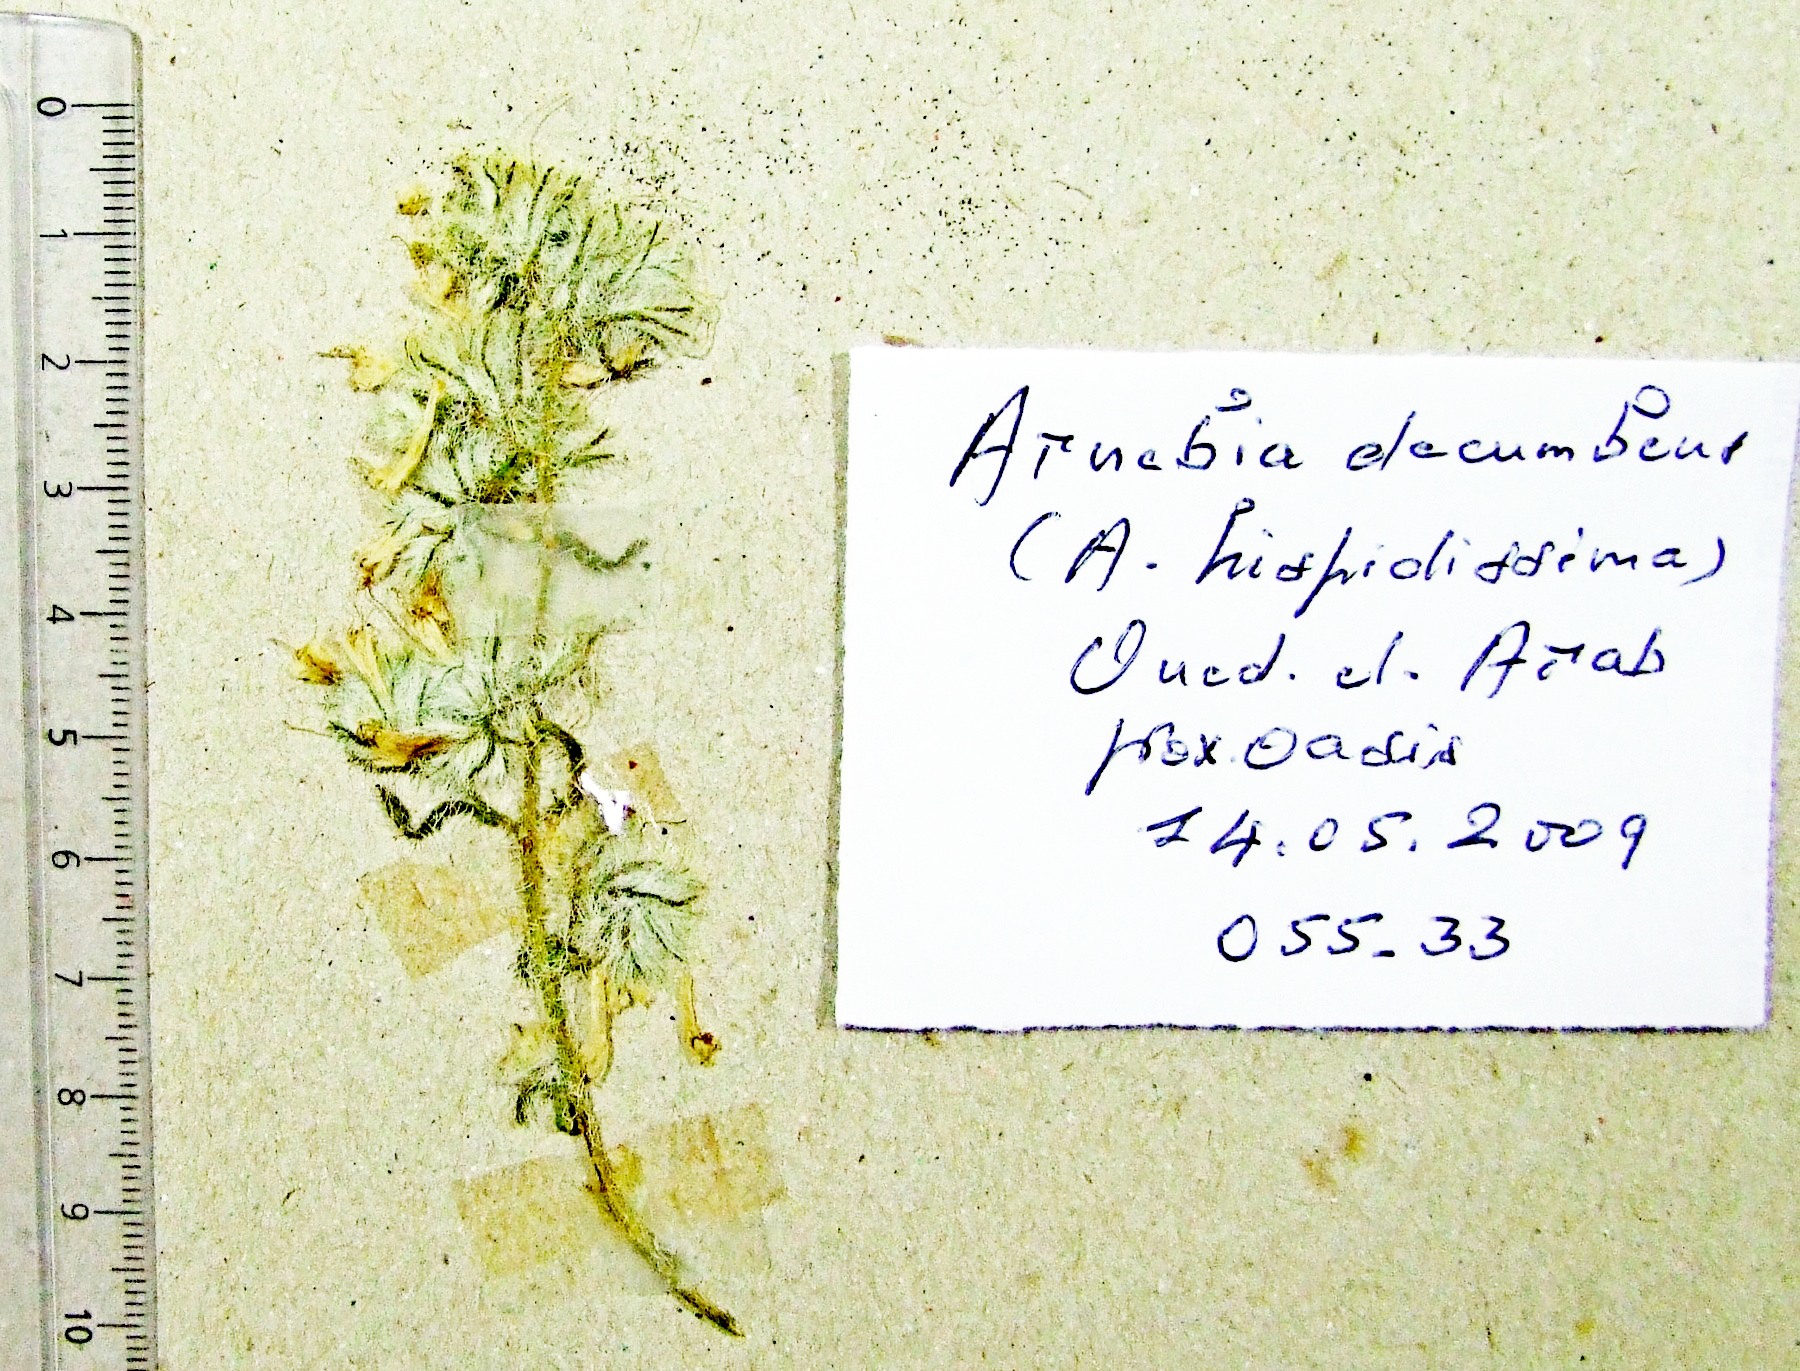 0
1
2
3
4
5
6
7
8
9
10
Arnebia decumbens
(A. hispidissima)
Oued. el. Arab
prox Oasis
14.05.2009
055-33